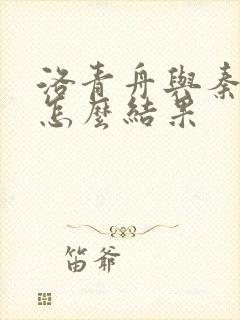 洛青舟與秦
怎麼結果
笛爷